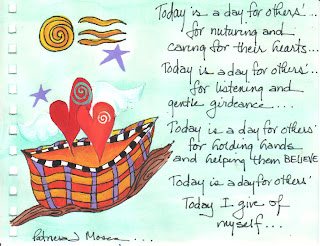 Today is a day for others'...
for nuturing and
caring for their hearts...
Today is a day for others'...
for listening and
gentle guideance....
Today is a day for others'
for holding hands
and helping them BELIEVE
Today is a day for others'
Today I give of
myself...
Patricia J Mosca....